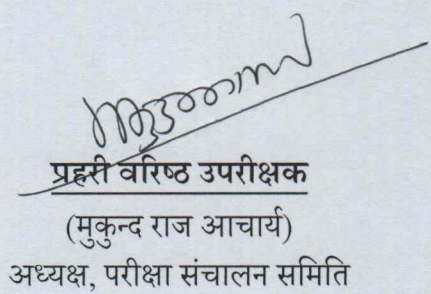 प्रहरी वरिष्ठ उपरीक्षक
(मुकुन्द राज आचार्य)
अध्यक्ष, परीक्षा संचालन समिति